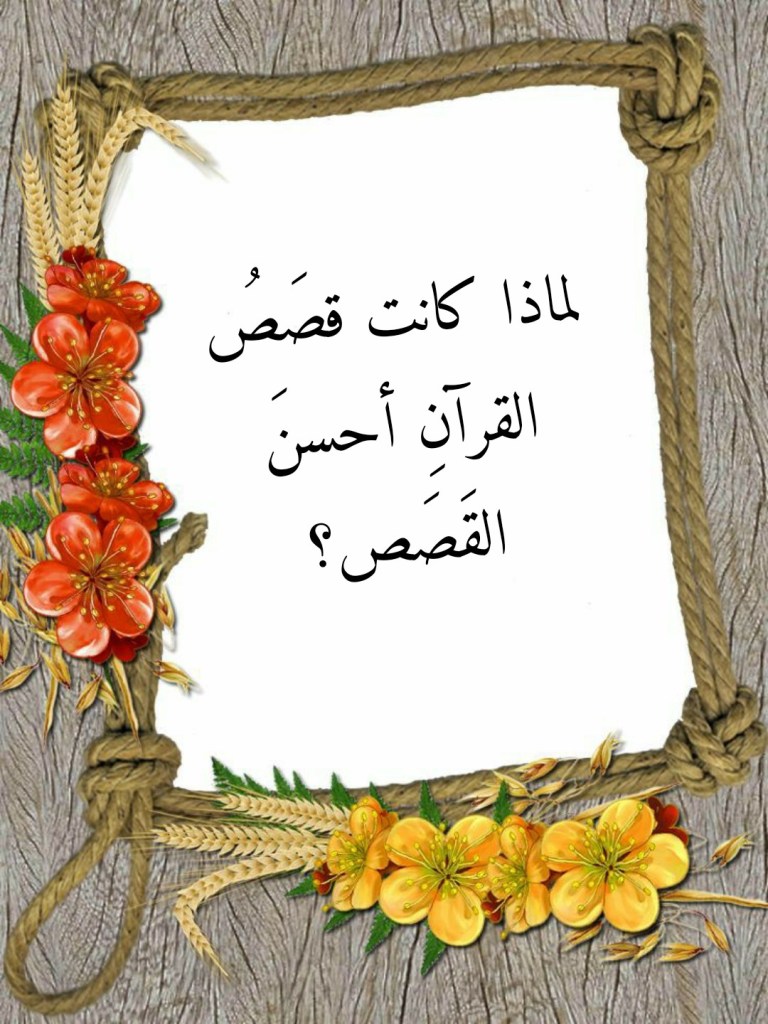 لماذا كانت قصَصُ
القرآنِ أحسنَ
القَصَص؟